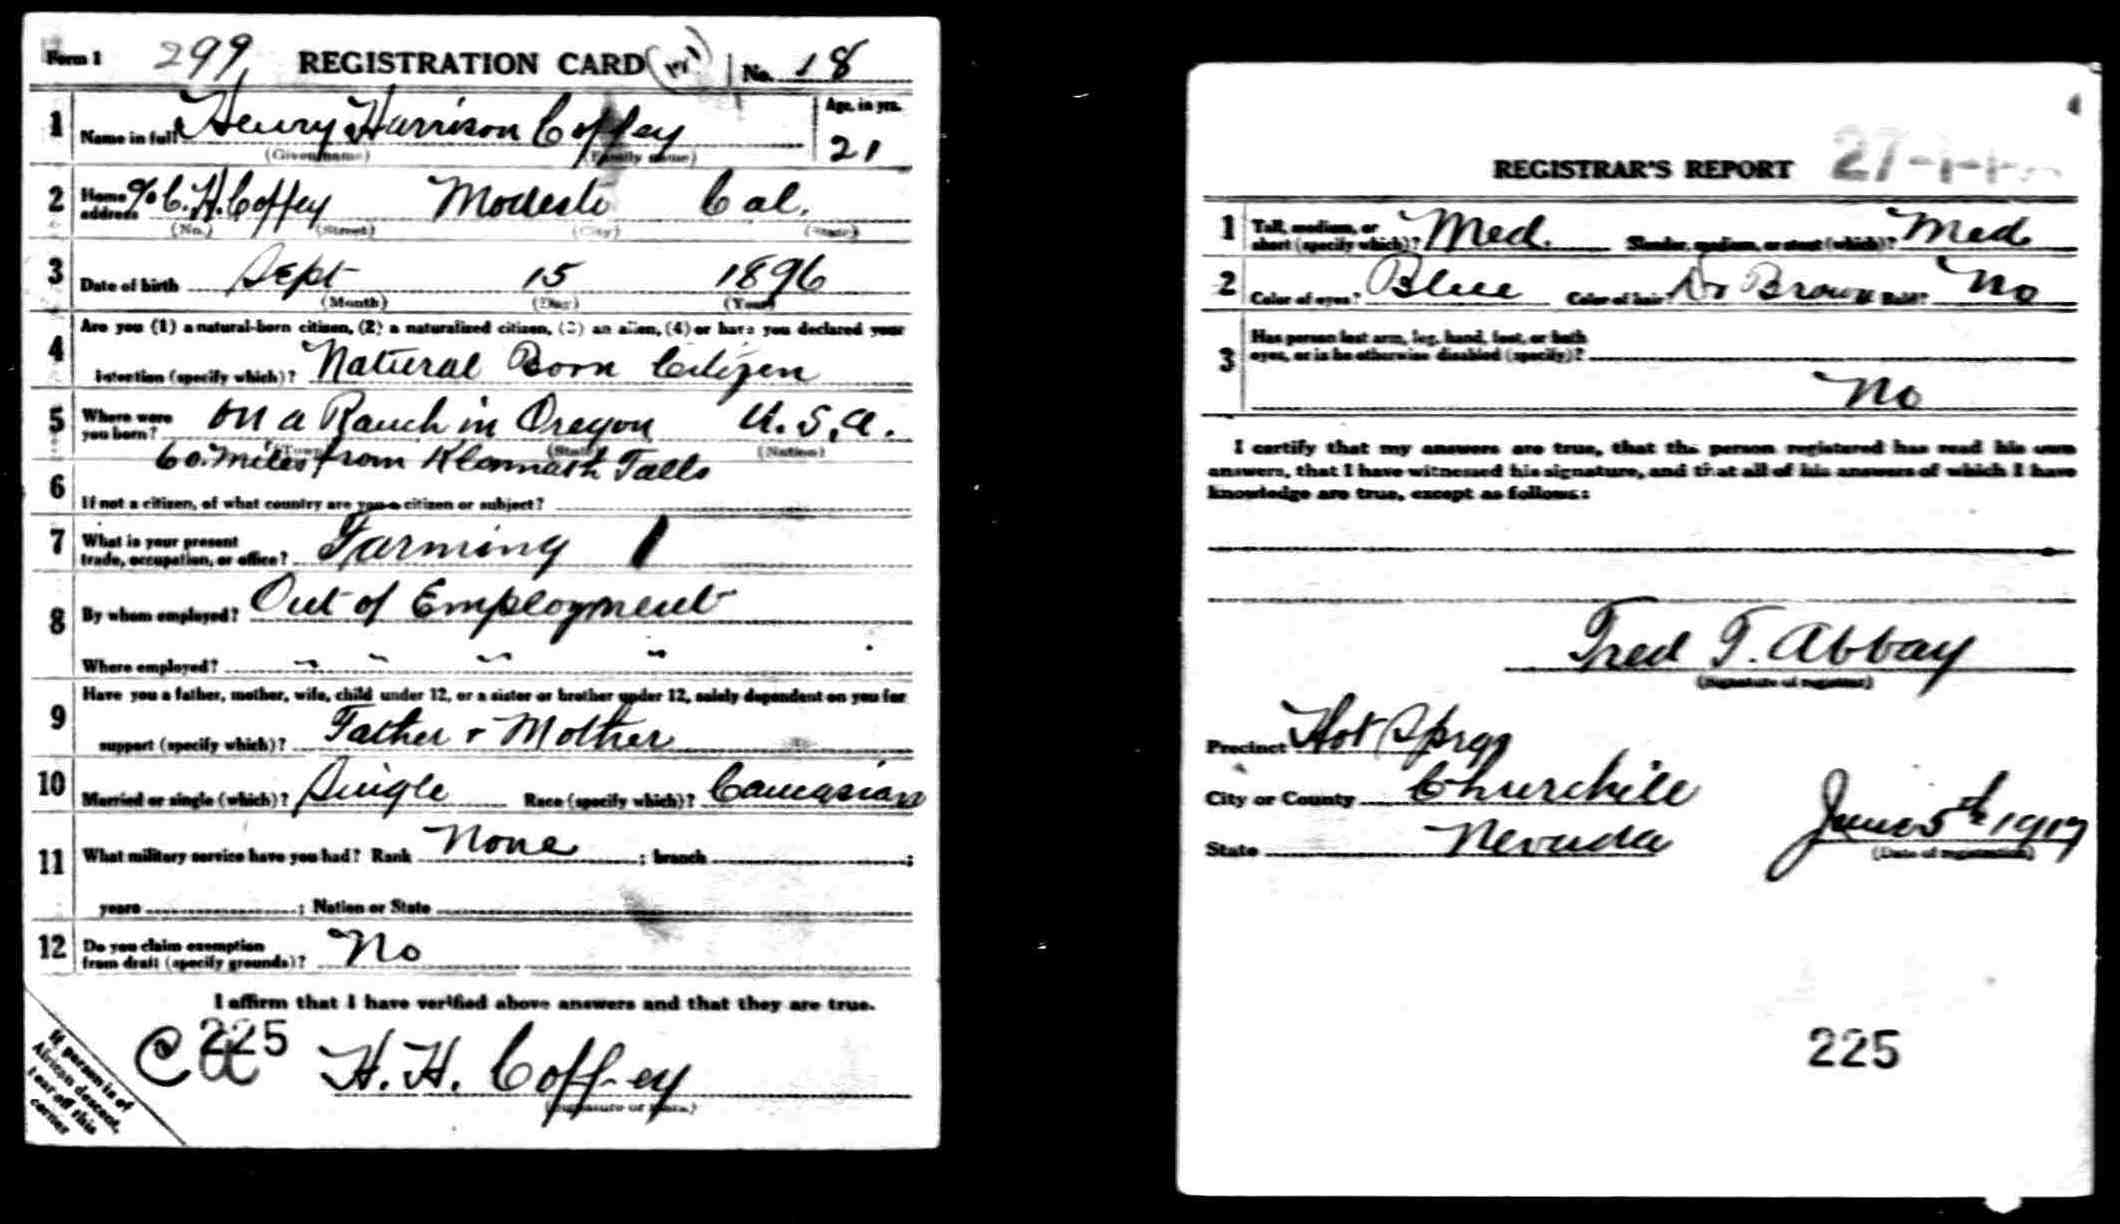 Form 1 299 REGISTRATION CARD No. 18
1 Name in full Henry Harrison Coffey Age, in yrs. 21
(Given name) (Family name)
2 Home address % C. H. Coffey Modesto Cal.
(No.) (Street) (City) (State)
3 Date of birth Sept 15 1896
(Month) (Day) (Year)
4 Are you (1) a natural-born citizen, (2) a naturalized citizen, (3) an alien, (4) or have you declared your
intention (specify which)? Natural Born Citizen
5 Where were you born? on a Ranch in Oregon U.S.A.
(Town) (State) (Nation)
60 miles from Klammath Falls
6 If not a citizen, of what country are you a citizen or subject?
7 What is your present trade, occupation, or office? Farming 1
8 By whom employed? Out of Employment
Where employed? " " " "
9 Have you a father, mother, wife, child under 12, or a sister or brother under 12, solely dependent on you for
support (specify which)? Father + Mother
10 Married or single (which)? Single Race (specify which)? Caucasian
11 What military service have you had? Rank None ; branch ;
years ; Nation or State
12 Do you claim exemption from draft (specify grounds)? No
I affirm that I have verified above answers and that they are true.
225
H. H. Coffey
(Signature or mark)
If person is of
African descent,
tear off this
corner
REGISTRAR'S REPORT
1 Tall, medium, or short (specify which)? Med. Slender, medium, or stout (which)? Med
2 Color of eyes? Blue Color of hair? Dr Brown Bald? No
3 Has person lost arm, leg, hand, foot, or both
eyes, or is he otherwise disabled (specify)?
No
I certify that my answers are true, that the person registered has read his own
answers, that I have witnessed his signature, and that all of his answers of which I have
knowledge are true, except as follows:
Fred T. Abbay
(Signature of registrar)
Precinct Hot Sprgs
City or County Churchill
State Nevada June 5th 1917
(Date of registration)
225